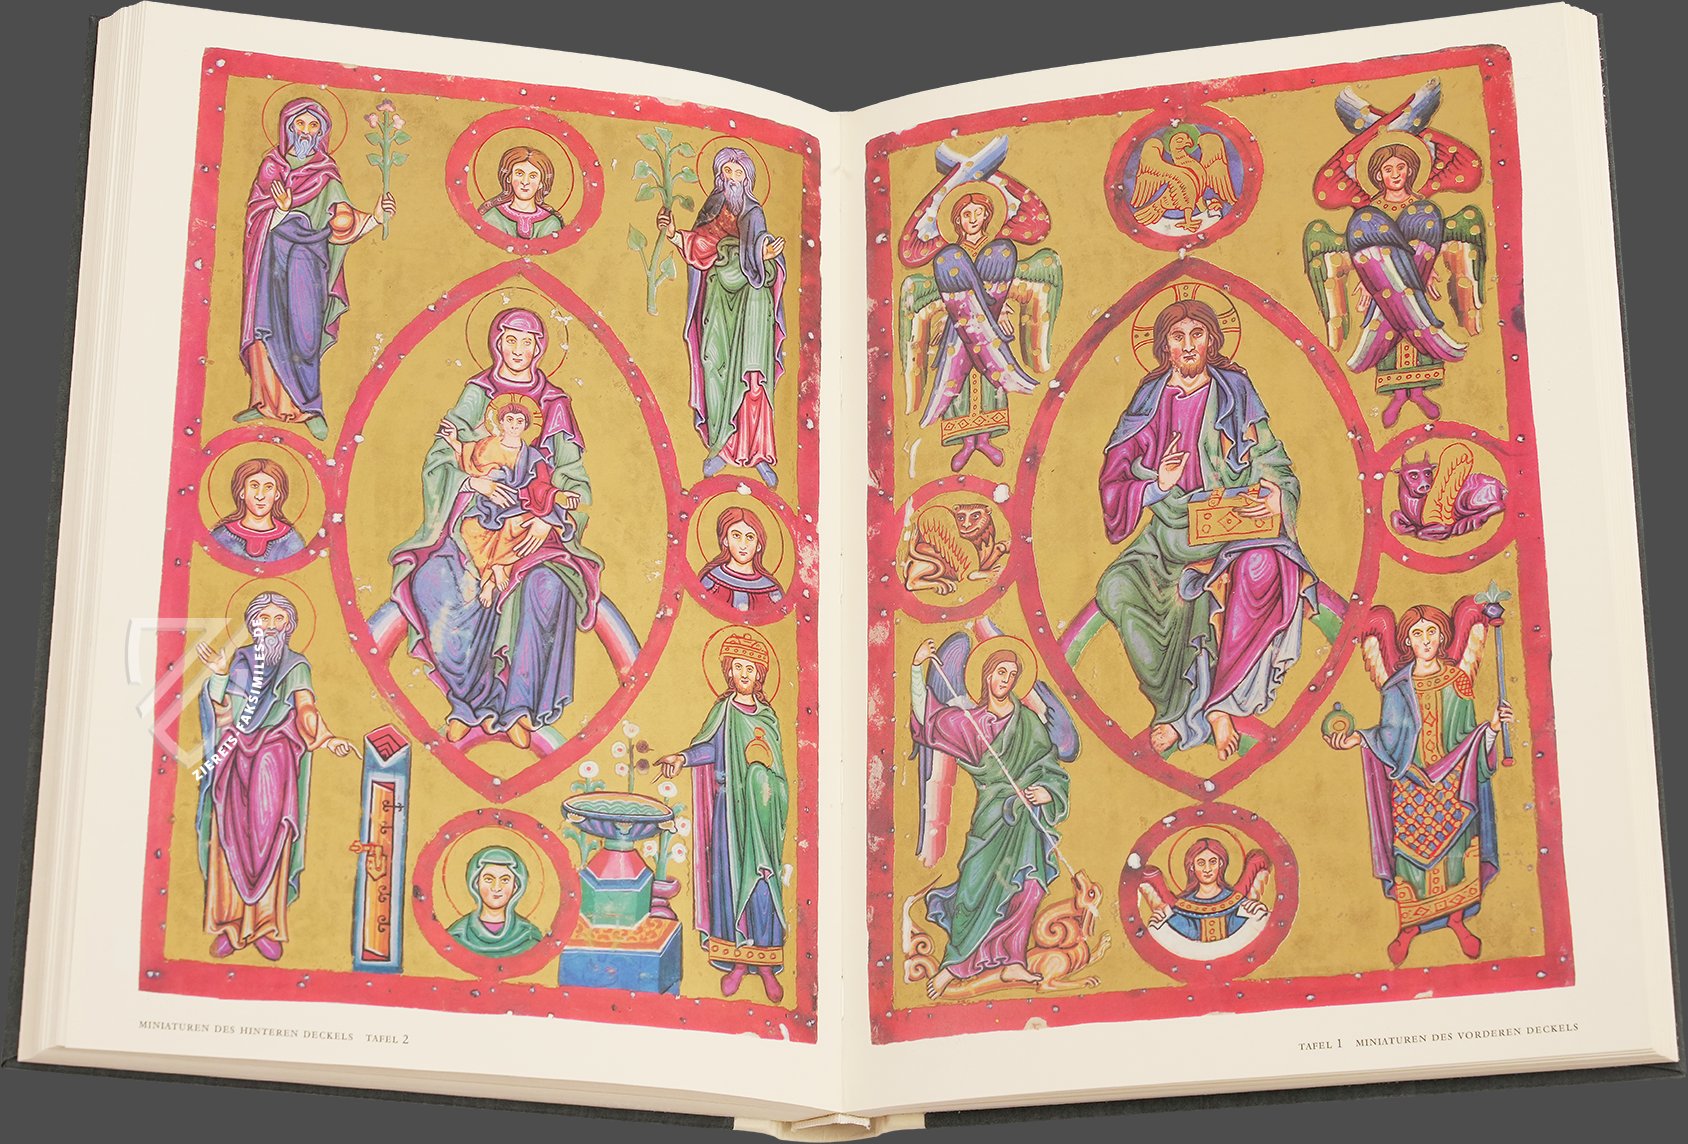 MINIATUREN DES HINTEREN DECKELS TAFEL 2
TAFEL 1 MINIATUREN DES VORDEREN DECKELS
ZIEREIS FAKSIMILES.DE